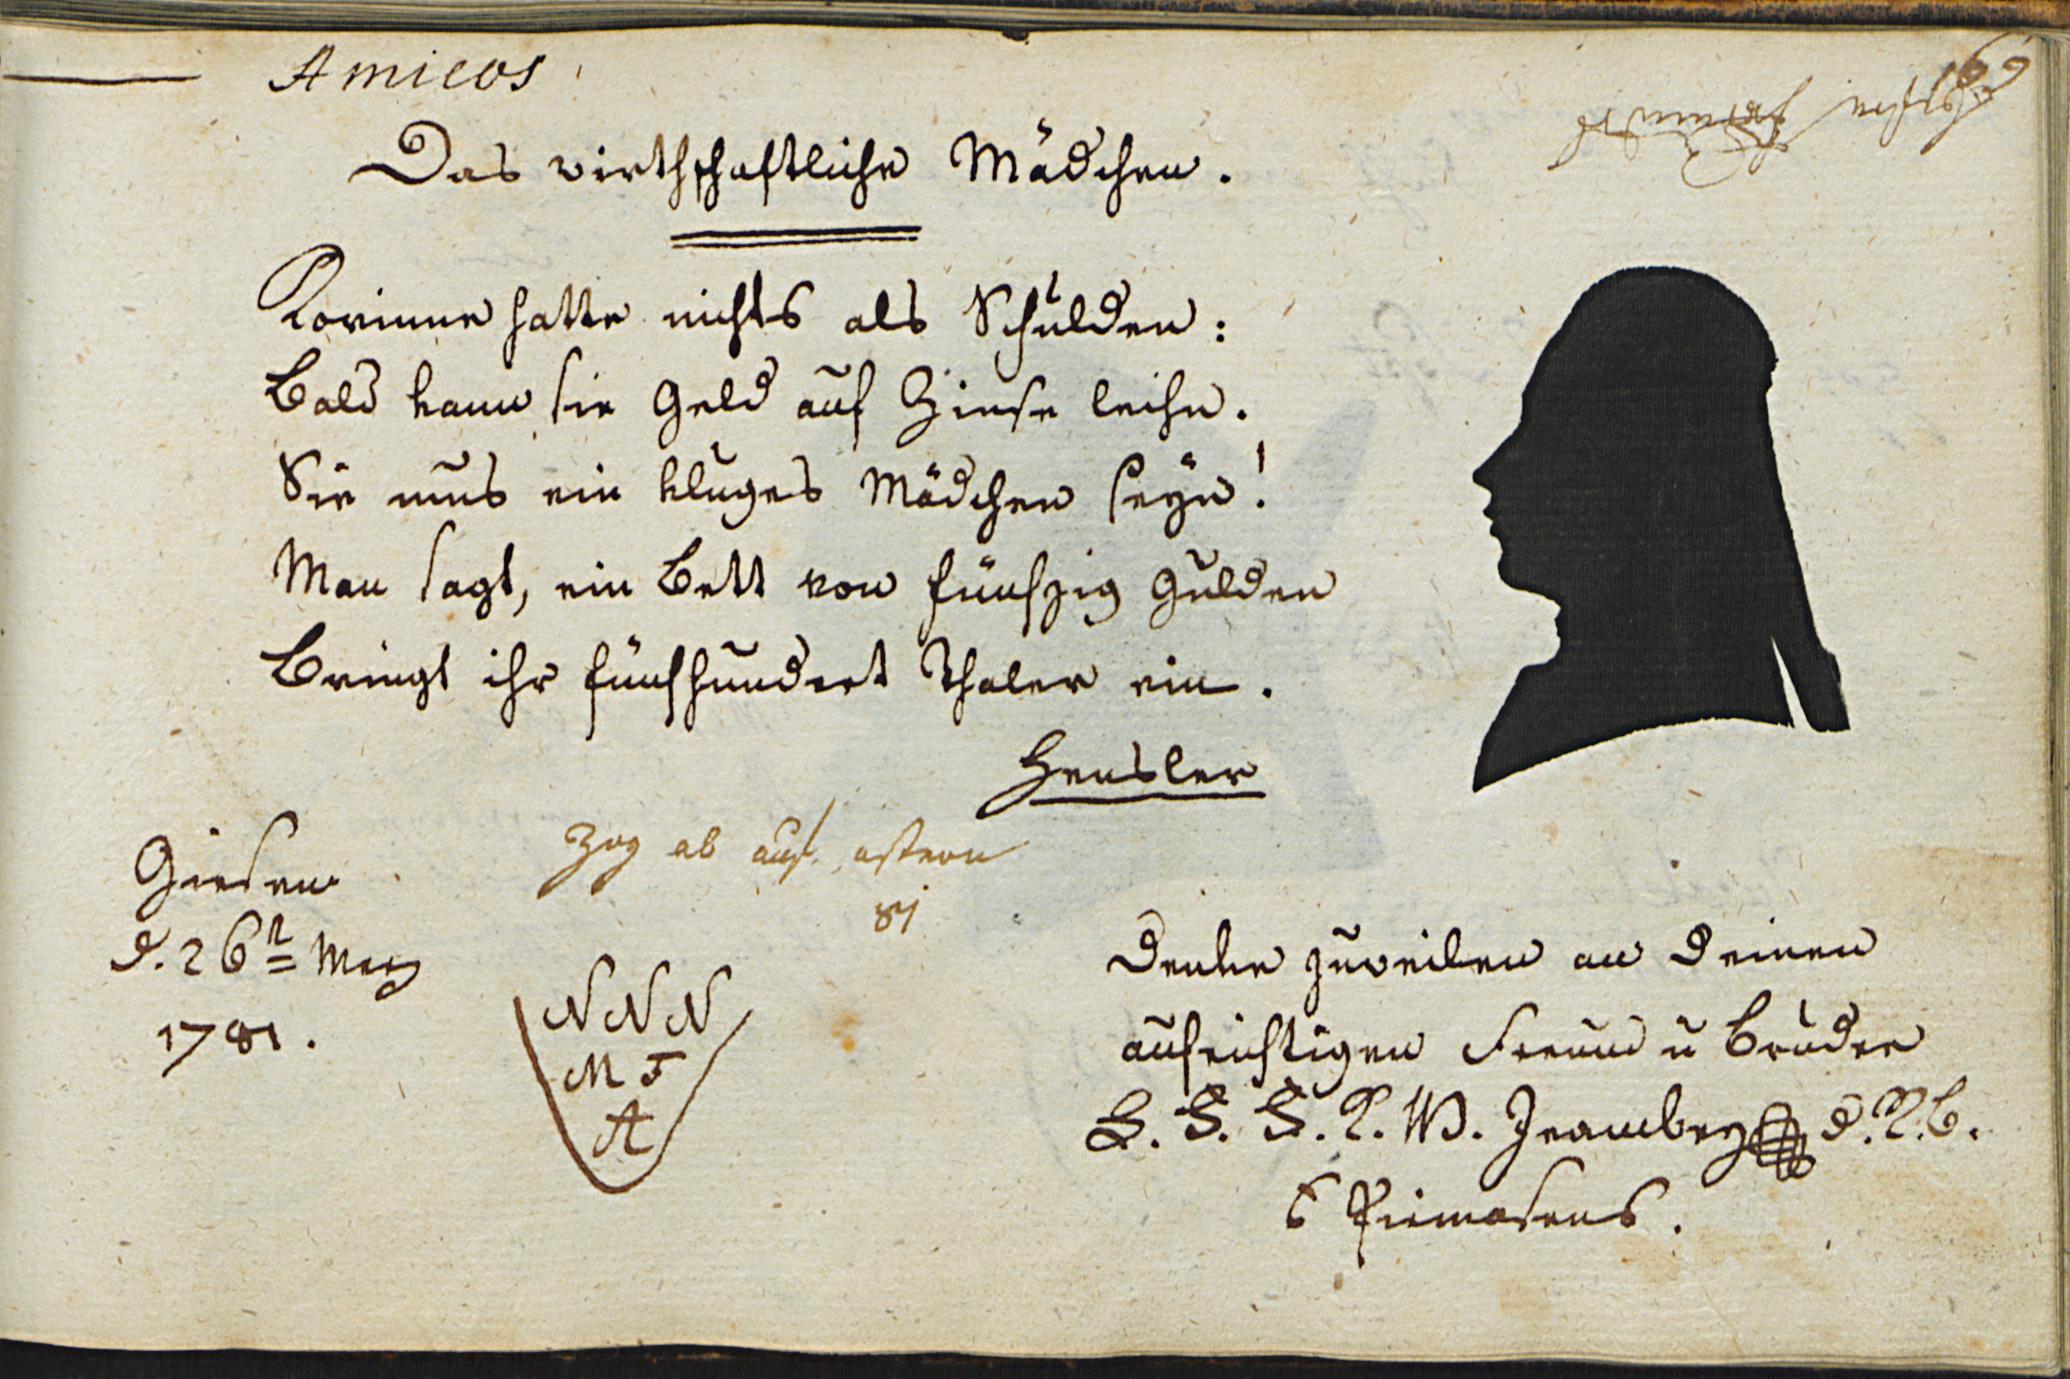 Amicos
69
Das wirthschaftliche Mädchen.
Korinne hatte nichts als Schulden:
Bald kann sie Geld auf Zinse leihn.
Sie mus ein kluges Mädchen seyn!
Man sagt, ein Bett von fünfzig Gulden
Bringt ihr fünfhundert Thaler ein.
Hensler
Giesen
d. 26 Merz
1781.
Zog ab auf ostern
81
NNN
M F
A
Denke zuweilen an Deinen
aufrichtigen Freund u Bruder
W.
Pirmasens.